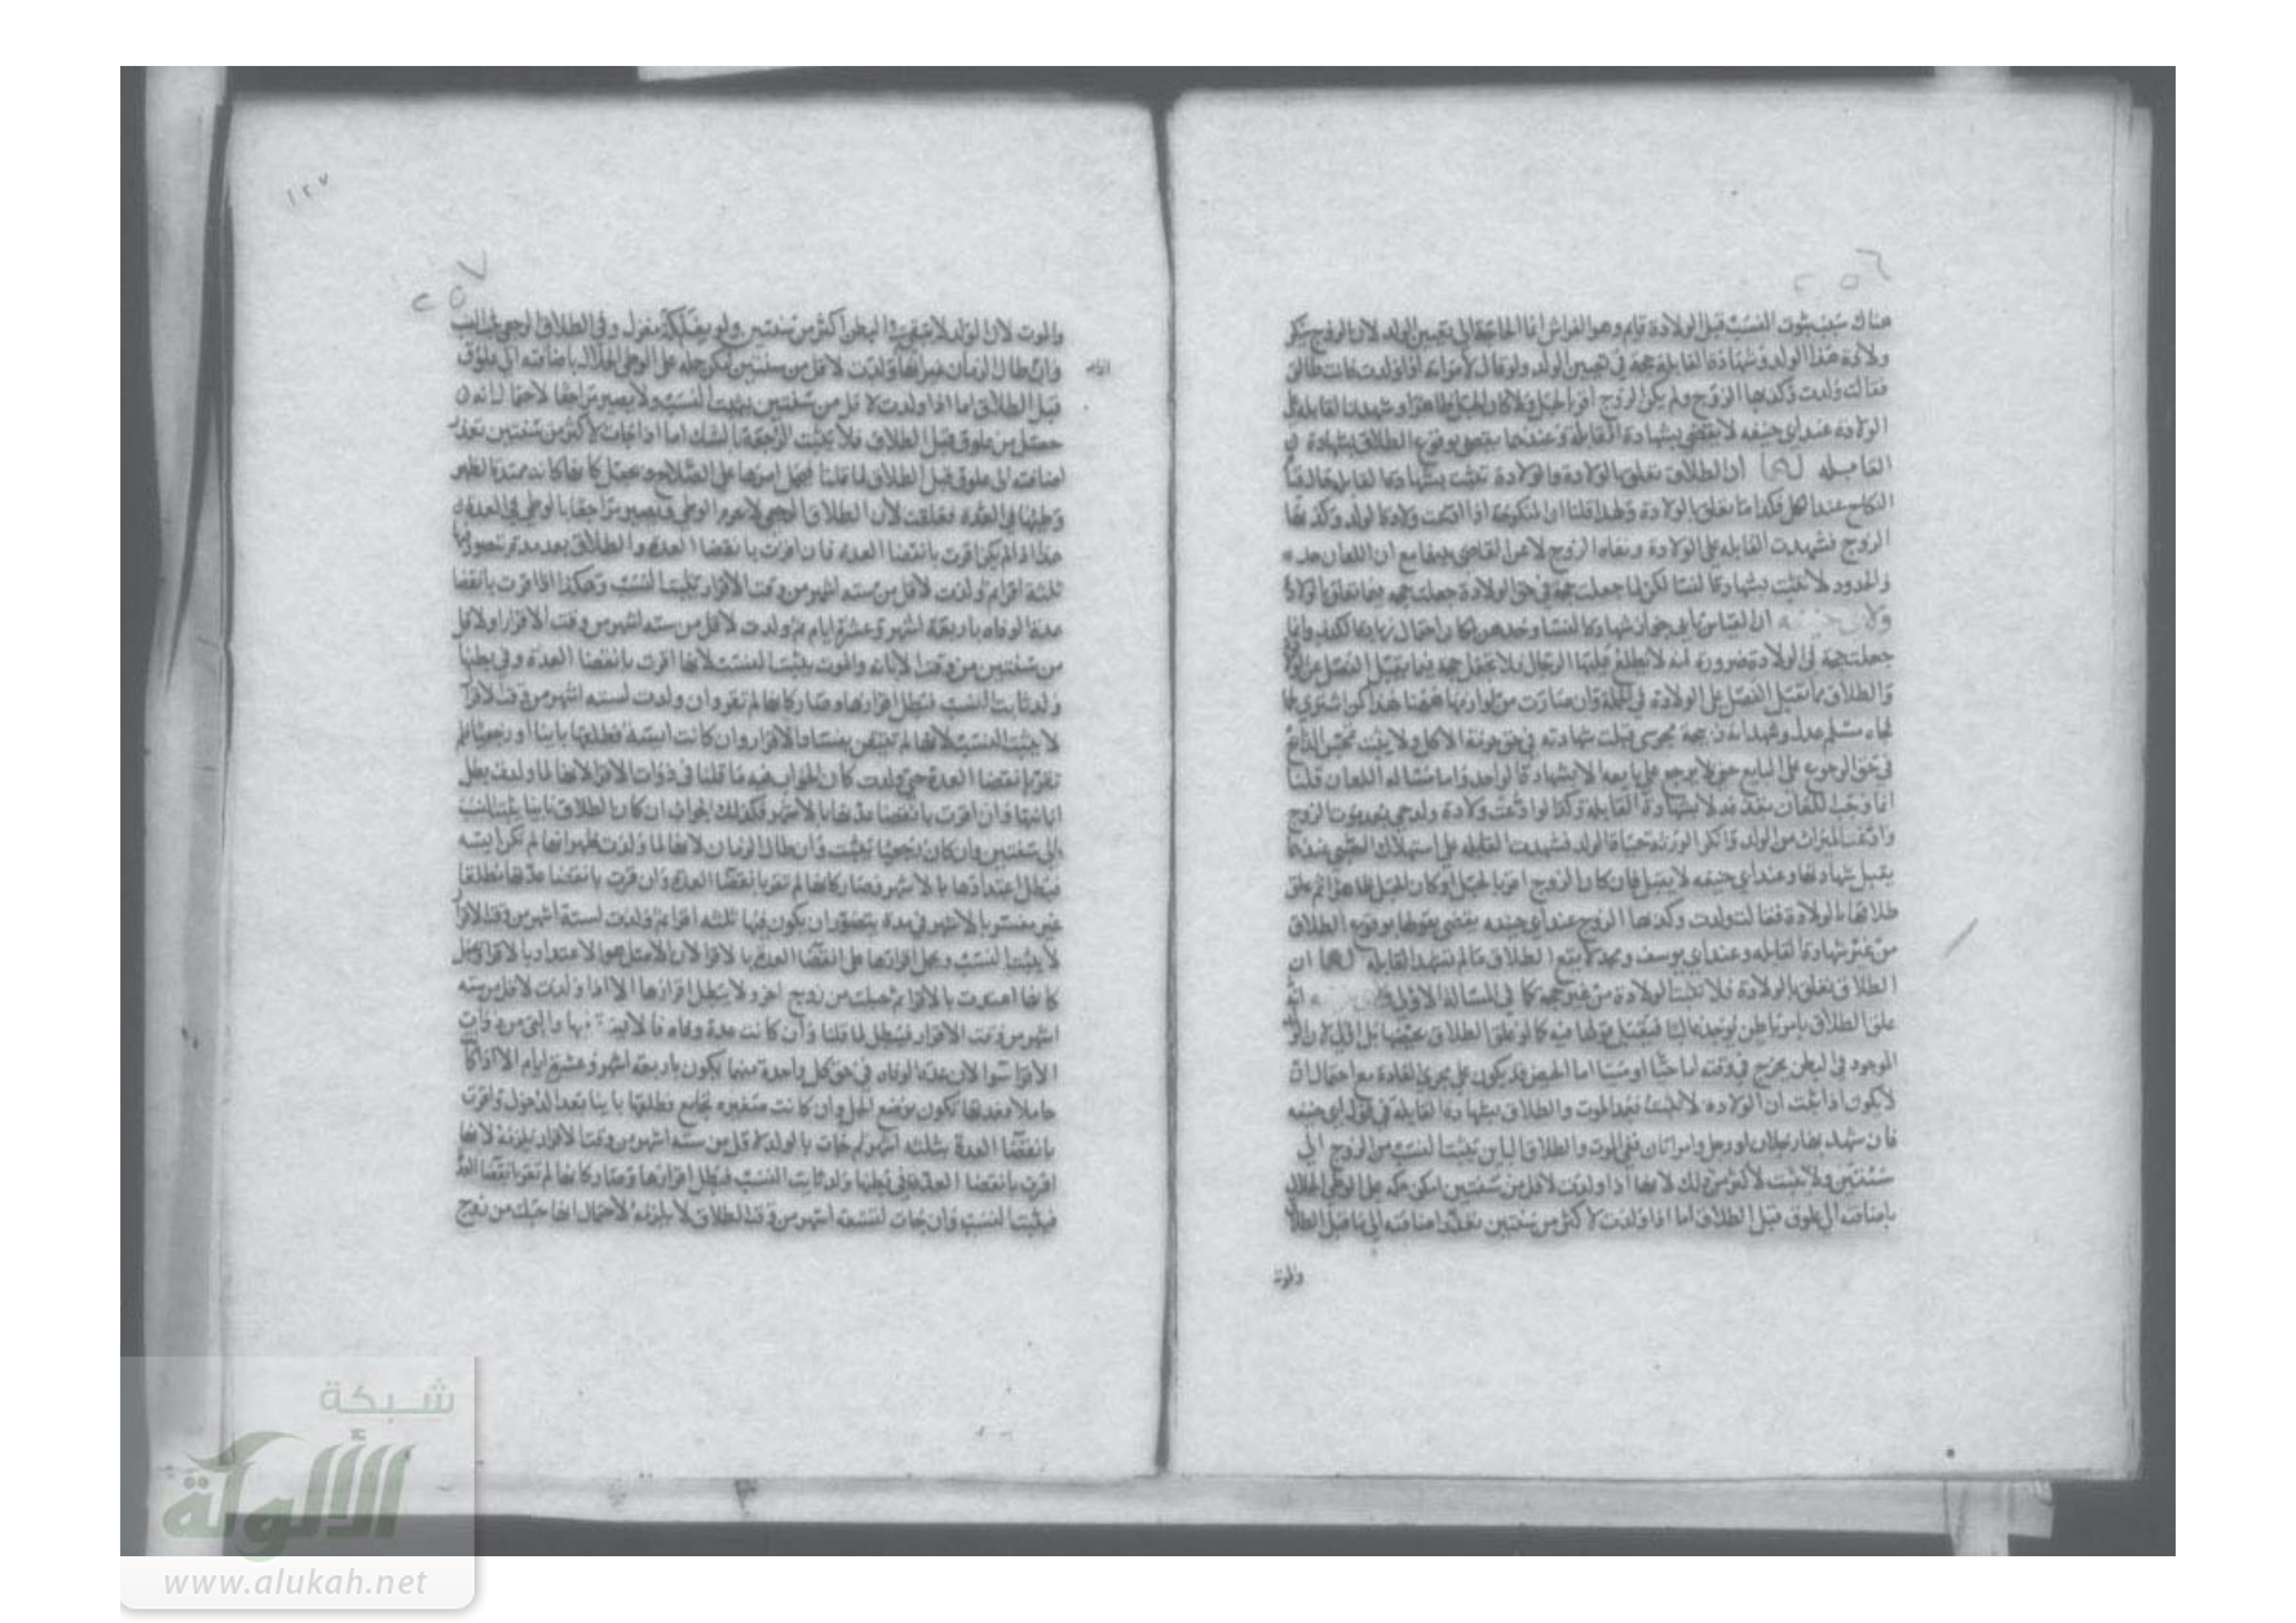 ٢٥٦
هناك سبب ثبوت النسب قبل الولادة قايم وهو الفراش اما الحاجة الى تعيين الولد لان الزوج ينكر
ولادة هذا الولد وشهادة القابلة حجة في تعيين الولد ولو قال لامراته اذا ولدت فانت طالق
فقالت ولدت وكذبها الزوج ولم يكن الزوج اقر بالحبل ولا كان الحبل ظاهرا وشهدت القابلة على
الولادة عند ابي حنيفه لا يقضي بشهادة القابلة وعندهما يقضي بوقوع الطلاق بشهادة
القابله لهما ان الطلاق تعلق بالولادة والولادة تثبت بشهادة القابلة حال قيام
النكاح عند الكل فكذا ما تعلق بالولادة ولهذا قلنا ان المنكوحة اذا ادعت ولادة الولد وكذبها
الزوج فشهدت القابله على الولادة ونفاه الزوج لاعن القاضي بينهما مع ان اللعان حد
والحدود لا تثبت بشهادة النسا لكن لما جعلت حجة في حق الولادة جعلت حجة فيما تعلق بالولادة
ولابي حنيفه ان القياس يابى جواز شهادة النسا وحدهن
جعلت حجة في الولادة ضرورة انه لا يطلع عليها الرجال فلا تجعل حجة فيما يقبل الفصل عن الولادة
والطلاق مما يقبل الفصل عن الولادة في الجملة وان صارت من لوازمها ههنا هذا كمن اشترى لحما
فجاء مسلم عدل وشهد انه ذبيحة مجوسي قبلت شهادته في حق حرمة الاكل ولا يثبت تمجس الذابح
في حق الرجوع على البايع حتى لا يرجع على بايعه الا بشهادة الواحد واما مسالة اللعان قلنا
انما وجب اللعان بقذفه لا بشهادة القابلة وكذا لو ادعت ولادة ولد حي بعد موت الزوج
وادعت الميراث من الولد وانكر الورثة حياة الولد فشهدت القابله على استهلال الصبي عندهما
يقبل شهادتها وعند ابي حنيفه لا يقبل فان كان الزوج اقر بالحبل او كان الحبل ظاهرا ثم علق
طلاقها بالولادة فقالت ولدت وكذبها الزوج عند ابي حنيفه يقضي بقولها بوقوع الطلاق
من غير شهادة القابله وعند ابي يوسف ومحمد لا يقع الطلاق ما لم تشهد القابله لهما ان
الطلاق تعلق بالولادة فلا تثبت الولادة من غير حجة كما في المسالة الاولى انه
علق الطلاق بامر باطن فيقبل قولها فيه كما لو علق الطلاق بحيضها بل اولى لان
الموجود في البطن يخرج في وقته اما حيا او ميتا اما الحيض قد يكون على مجرى العادة مع احتمال ان
لا يكون اذا ثبت ان الولادة لا تثبت بعد الموت والطلاق بشهادة القابلة في قول ابي حنيفه
فان شهد بها رجلان او رجل وامراتان ففي الموت والطلاق الباين يثبت النسب من الزوج الى
سنتين ولا يثبت لاكثر من ذلك لانها اذا ولدت لاقل من سنتين امكن حمله على الوطي الحلال
باضافته الى علوق قبل الطلاق اما اذا ولدت لاكثر من سنتين تعذر اضافته الى ما قبل الطلاق
والموت
١٢٧
٢٥٧
والموت لان الولد لا يبقى في البطن اكثر من سنتين ولو بفلكة مغزل وفي الطلاق الرجعي يثبت النسب
وان طال الزمان غير انها ان ولدت لاقل من سنتين يمكن حمله على الوطي الحلال باضافته الى علوق
قبل الطلاق اما اذا ولدت لاقل من سنتين يثبت النسب ولا يصير مراجعا لاحتمال انه
حصل من علوق قبل الطلاق فلا يثبت الرجعة بالشك اما اذا جات لاكثر من سنتين تعذر
اضافته الى علوق قبل الطلاق لما قلنا فيحمل امرها على الصلاح ويجعل كانها كانت ممتدة الطهر
وطيها في العدة فعلقت لان الطلاق الرجعي لا يحرم الوطي فيصير مراجعا بالوطي في العدة
هذا اذا لم يكن اقرت بانقضا العدة فان اقرت بانقضا العدة والطلاق بعد مدة تتصور فيها
ثلثة اقراء ثم ولدت لاقل من سته اشهر من وقت الاقرار يثبت النسب وهكذا اذا اقرت بانقضا
عدة الوفاه باربعة اشهر وعشرة ايام ثم ولدت لاقل من سته اشهر من وقت الاقرار ولاقل
من سنتين من وقت الابانه والموت يثبت النسب لانها اقرت بانقضا العدة وفي بطنها
ولد ثابت النسب فبطل اقرارها وصار كانها لم تقر وان ولدت لسته اشهر من وقت الاقرار
لا يثبت النسب لانها لم تبن بفساد الاقرار وان كانت ايسة فطلقها باينا او رجعيا فلم
تقر بانقضا العدة حتى ولدت كان الجواب فيه ما قلنا في ذوات الاقرا لانها لما ولدت بطل
اياسها وان اقرت بانقضا عدتها بالاشهر فكذلك الجواب ان كان الطلاق باينا يثبت النسب
الى سنتين وان كان رجعيا يثبت وان طال الزمان لانها لما ولدت ظهر انها لم تكن ايسه
فبطل اعتدادها بالاشهر فصار كانها لم تقر بانقضا العدة وان اقرت بانقضا عدتها مطلقا
غير مفسر بالاشهر في مدة يتصور ان يكون فيها ثلثه اقراء ثم ولدت لستة اشهر من وقت الاقرار
لا يثبت النسب ويحمل اقرارها على انقضا العدة بالاقرا لان الاصل هو الاعتداد بالاقرا ويجعل
كانها اعتدت بالاقرا ثم حبلت من زوج اخر ولا يبطل اقرارها الا اذا ولدت لاقل من سته
اشهر من وقت الاقرار فيبطل لما قلنا وان كانت عدة وفاه فالايسة فيها والتي من ذوات
الاقرا سوا لان عدة الوفاه في حق كل واحدة منهما يكون باربعة اشهر وعشرة ايام الا اذا كانت
حاملا فعدتها تكون بوضع الحمل وان كانت صغيره تجامع فطلقها باينا بعد الدخول واقرت
بانقضا العدة بثلثه اشهر ثم جات بالولد لاقل من سته اشهر من وقت الاقرار يلزمه لانها
اقرت بانقضا العدة وفي بطنها ولد ثابت النسب فبطل اقرارها وصار كانها لم تقر بانقضا العدة
فيثبت النسب وان جات لتسعة اشهر من وقت الطلاق لا يلزمه لاحتمال انها حبلت من زوج
شبكة
الألوكة
www.alukah.net